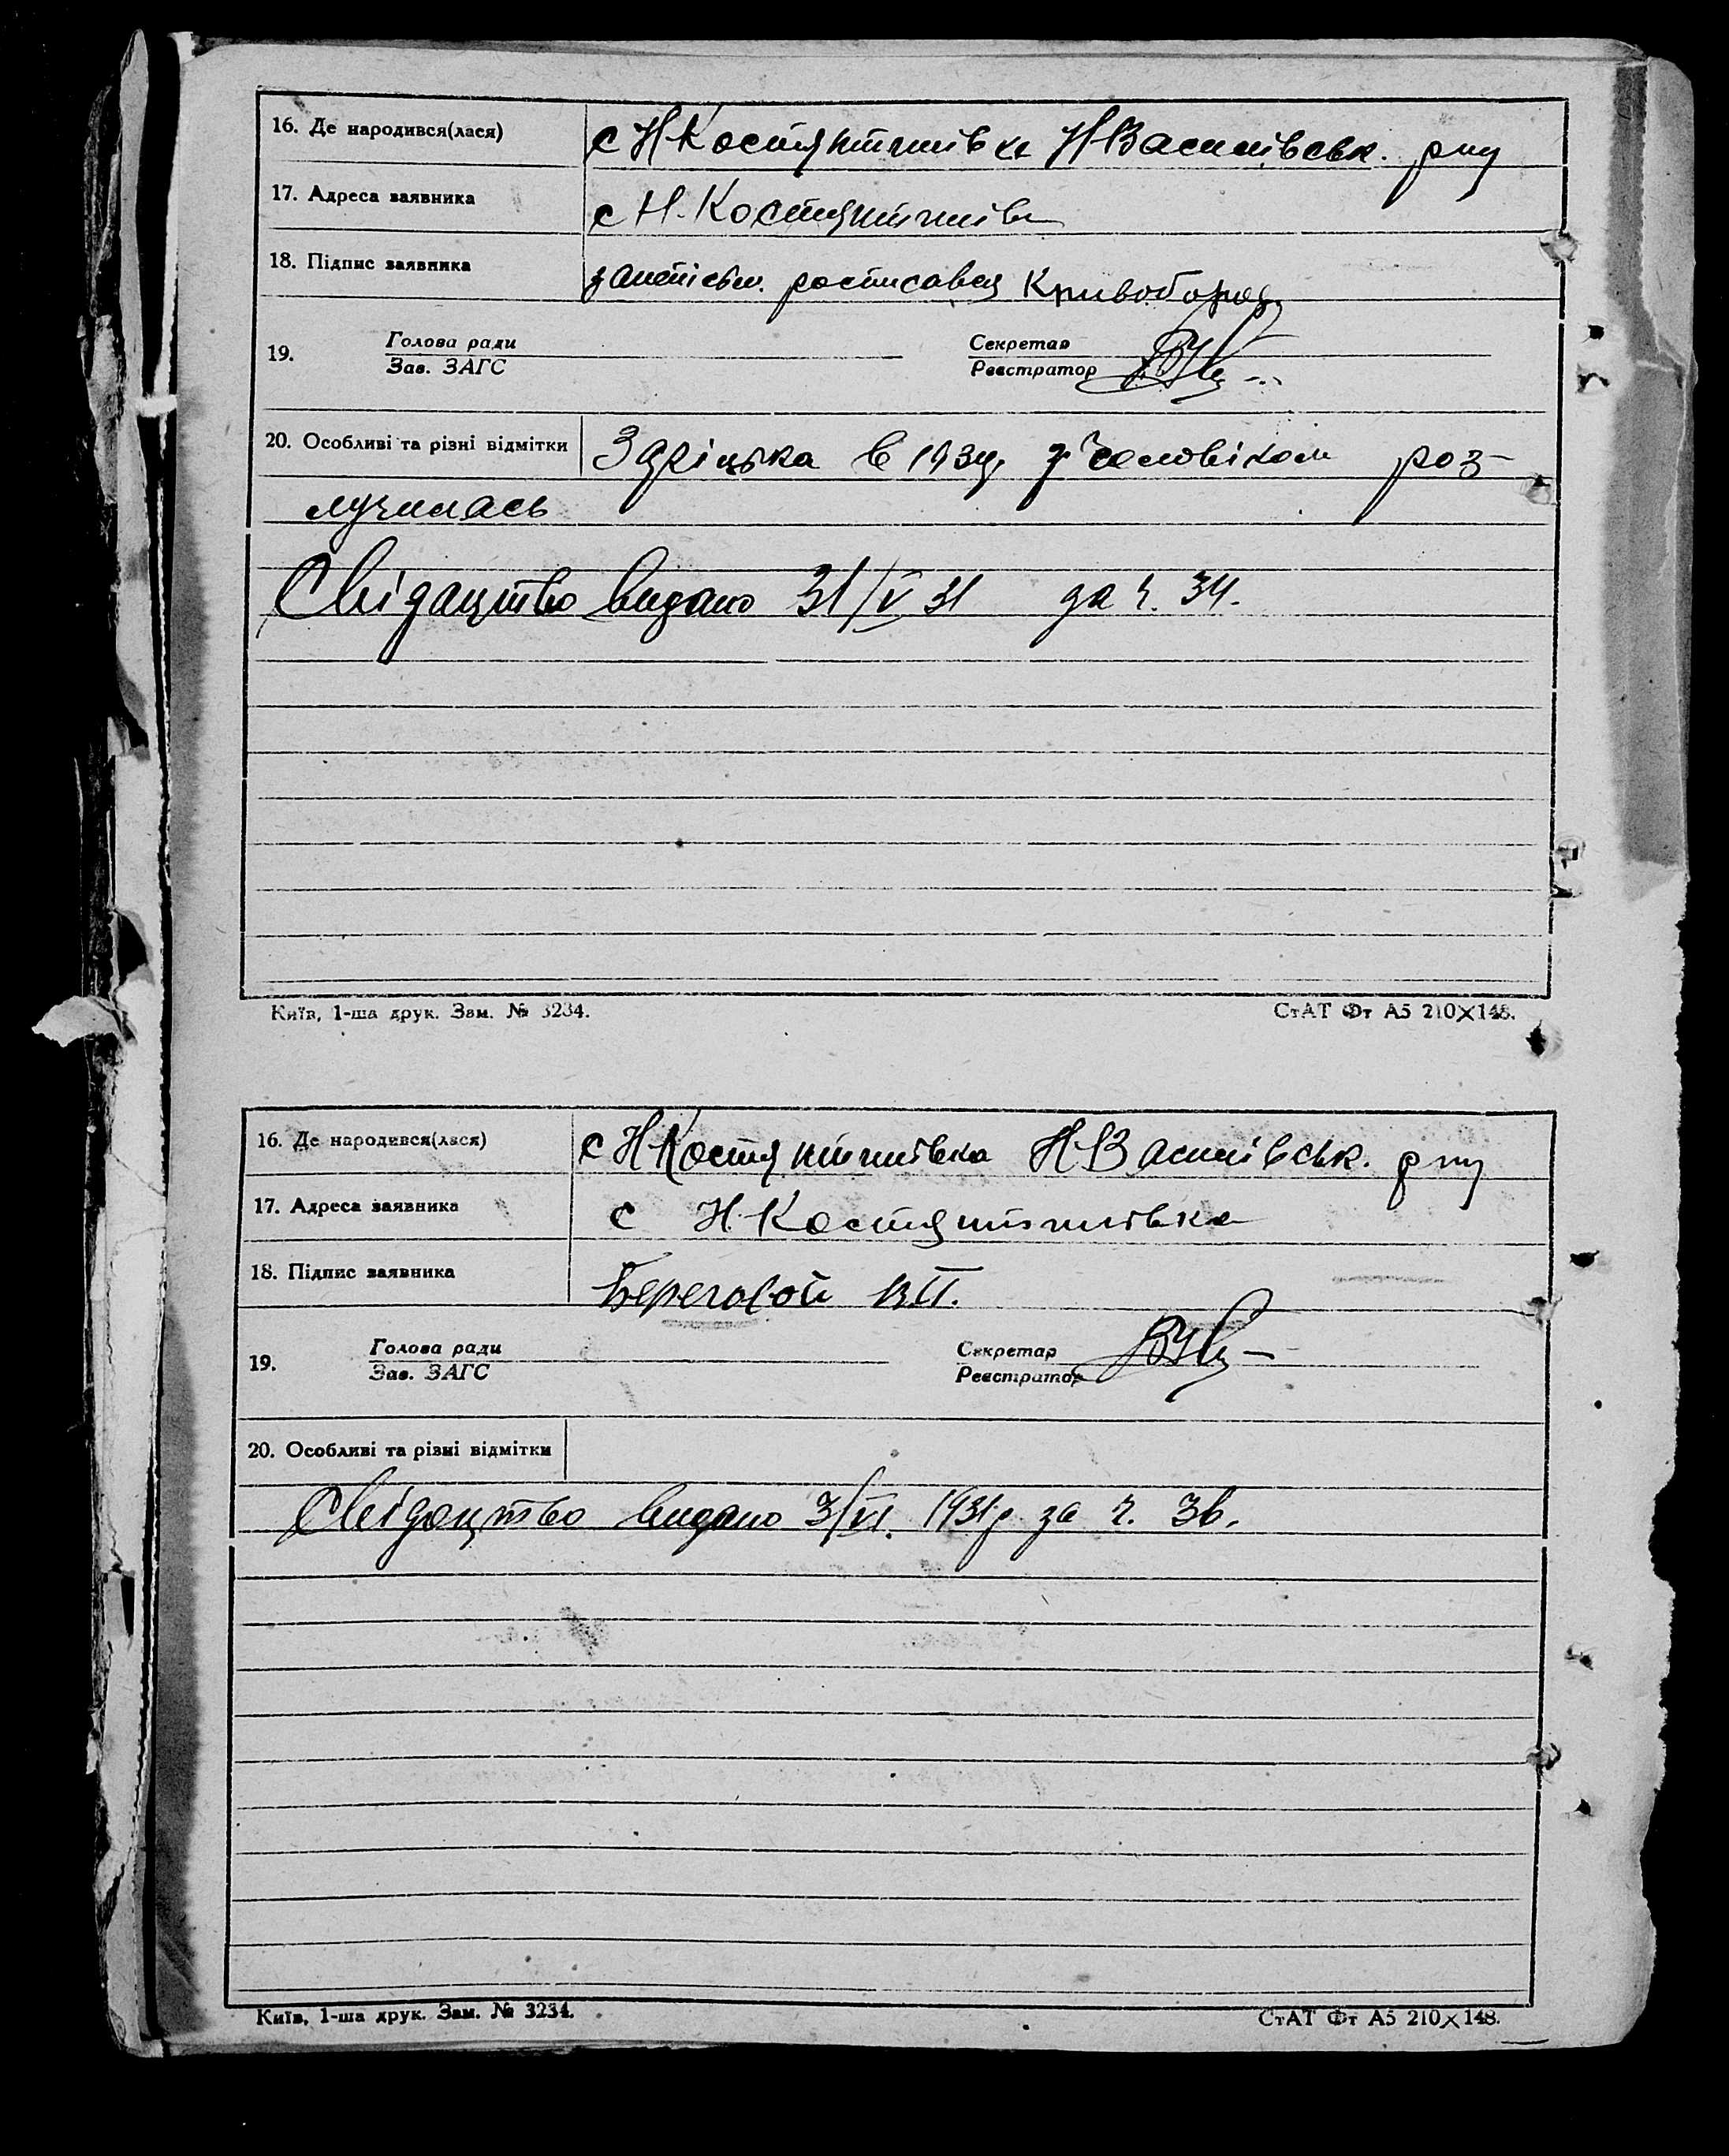 16. Де народився(лася) с Н-Костянтинівка Н Василівськ. р-ну
17. Адреса заявника с Н. Костянтинівка
18. Підпис заявника росписався Кривобород
19. Голова ради Секретар
Зав. ЗАГС Реєстратор
20. Особливі та різні відмітки Здріцька в 193 з чоловіком роз-
лучилась
Свідоцтво видано 31/V 31 за ч. 34.
Київ, 1-ша друк. Зам. № 3234. СтАТ Фт А5 210×148.
16. Де народився(лася) с Н Костянтинівка Н-Василівськ. р-ну
17. Адреса заявника с Н. Костянтинівка
18. Підпис заявника Береговой ВП.
19. Голова ради Секретар
Зав. ЗАГС Реєстратор
20. Особливі та різні відмітки
Свідоцтво видано 3/VI. 1931р за ч. 36.
Київ, 1-ша друк. Зам. № 3234. СтАТ Фт А5 210×148.